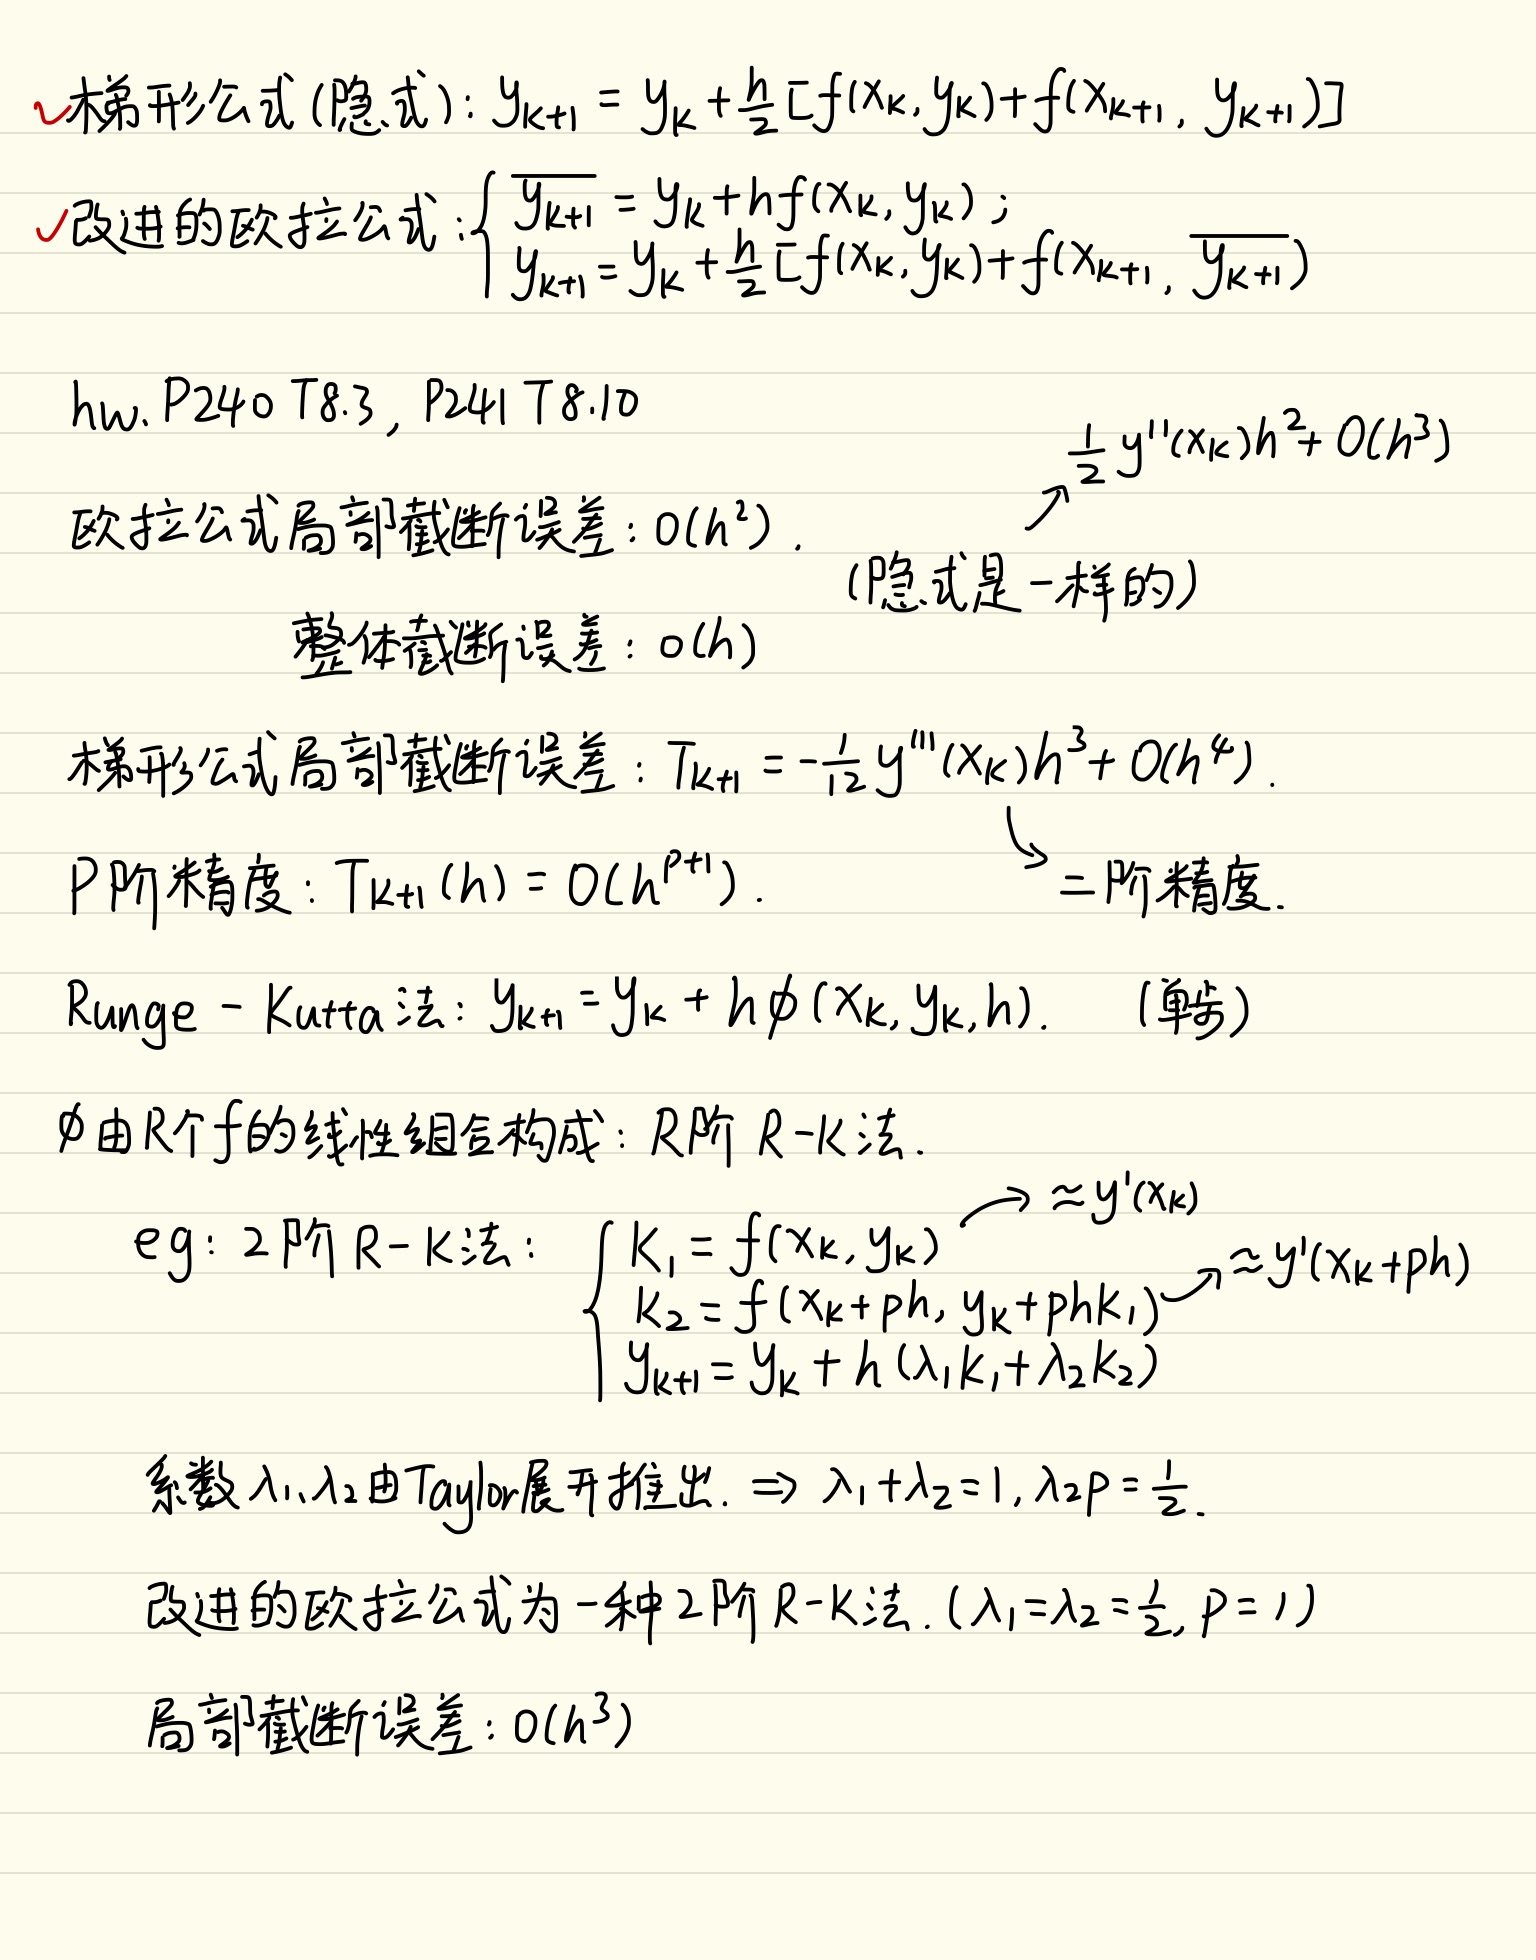 梯形公式(隐式): y_{k+1} = y_k + h/2 [f(x_k, y_k) + f(x_{k+1}, y_{k+1})]
改进的欧拉公式: { \overline{y_{k+1}} = y_k + hf(x_k, y_k);
y_{k+1} = y_k + h/2 [f(x_k, y_k) + f(x_{k+1}, \overline{y_{k+1}})
hw. P240 T8.3, P241 T8.10
1/2 y''(x_k)h² + O(h³)
欧拉公式局部截断误差: O(h²).
(隐式是一样的)
整体截断误差: O(h)
梯形公式局部截断误差: T_{k+1} = -1/12 y'''(x_k)h³ + O(h⁴).
P阶精度: T_{k+1}(h) = O(h^{p+1}).
→ 二阶精度.
Runge - Kutta法: y_{k+1} = y_k + hφ(x_k, y_k, h). (单步)
φ由R个f的线性组合构成: R阶 R-K法.
eg: 2阶R-K法: { K₁ = f(x_k, y_k) → ≈y'(x_k)
K₂ = f(x_k+ph, y_k+phK₁) → ≈y'(x_k+ph)
y_{k+1} = y_k + h(λ₁K₁+λ₂K₂)
系数λ₁、λ₂由Taylor展开推出. ⇒ λ₁+λ₂=1, λ₂p=1/2.
改进的欧拉公式为一种2阶R-K法. (λ₁=λ₂=1/2, p=1)
局部截断误差: O(h³)